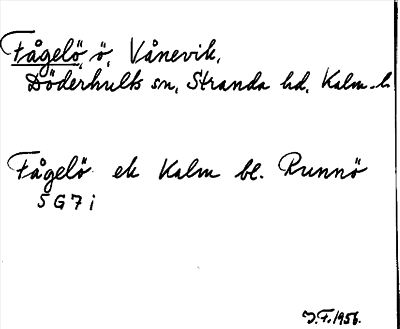 Fågelö, ö, Vånevik,
Döderhults sn, Stranda hd, Kalm. l.
Fågelö ek Kalm bl. Runnö
5 G 7 i
J.F. 1956.